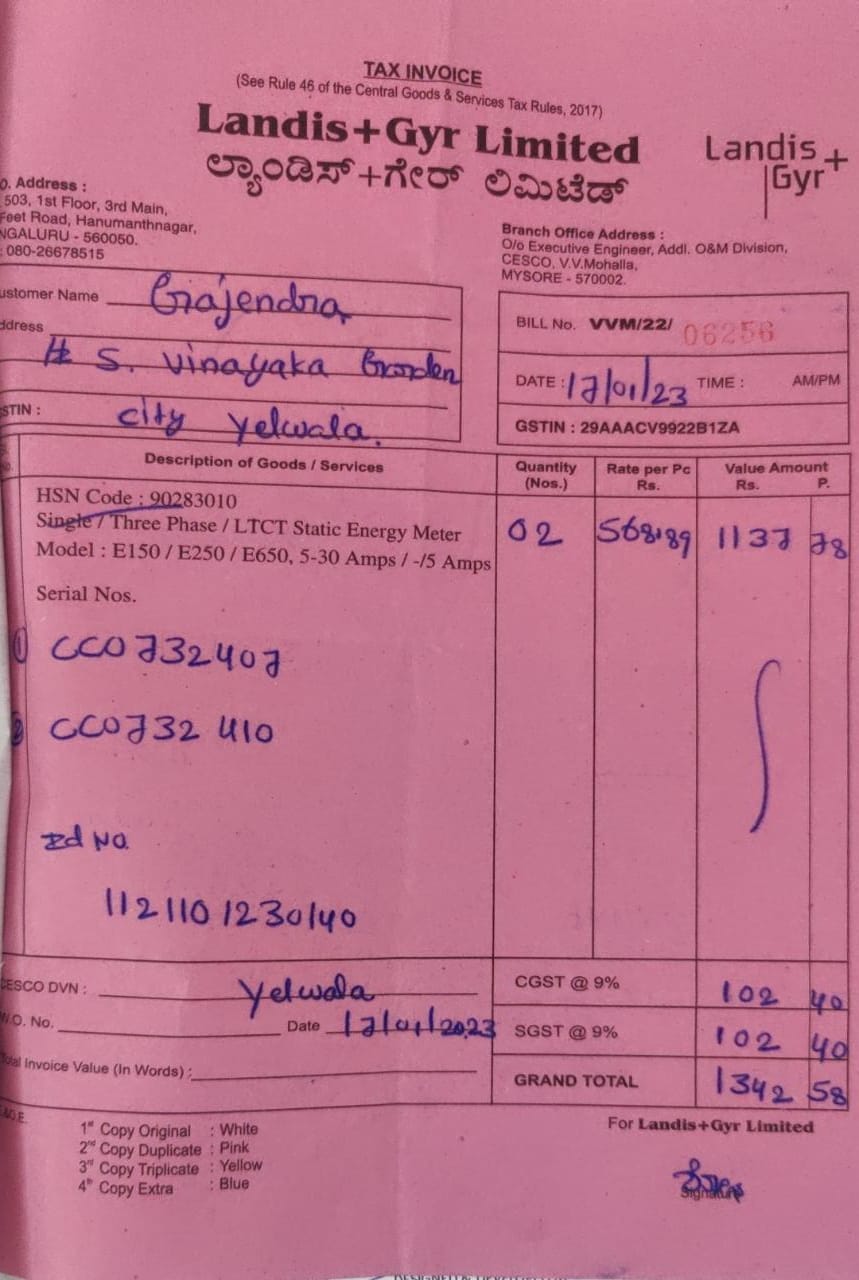 TAX INVOICE
(See Rule 46 of the Central Goods & Services Tax Rules, 2017)
Landis+Gyr Limited
ಲ್ಯಾಂಡಿಸ್+ಗೇರ್ ಲಿಮಿಟೆಡ್
Landis
Gyr
O. Address :
503, 1st Floor, 3rd Main,
Feet Road, Hanumanthnagar,
NGALURU - 560050.
: 080-26678515
Branch Office Address :
O/o Executive Engineer, Addl. O&M Division,
CESCO, V.V.Mohalla,
MYSORE - 570002.
ustomer Name Gajendra
ddress
# S. Vinayaka Garden
STIN : city Yelwala.
BILL No. VVM/22/ 06256
DATE : 17/01/23 TIME : AM/PM
GSTIN : 29AAACV9922B1ZA
Description of Goods / Services Quantity (Nos.) Rate per Pc Rs. Value Amount Rs. P.
HSN Code : 90283010
Single / Three Phase / LTCT Static Energy Meter 02 568.89 1137 78
Model : E150 / E250 / E650, 5-30 Amps / -/5 Amps
Serial Nos.
1 CC0732407
2 CC0732 410
Id NO.
112110 1230140
CESCO DVN : Yelwala CGST @ 9% 102 40
W.O. No. Date 17/01/2023 SGST @ 9% 102 40
Total Invoice Value (In Words) : GRAND TOTAL 1342 58
&O.E.
1st Copy Original : White
2nd Copy Duplicate : Pink
3rd Copy Triplicate : Yellow
4th Copy Extra : Blue
For Landis+Gyr Limited
Signature